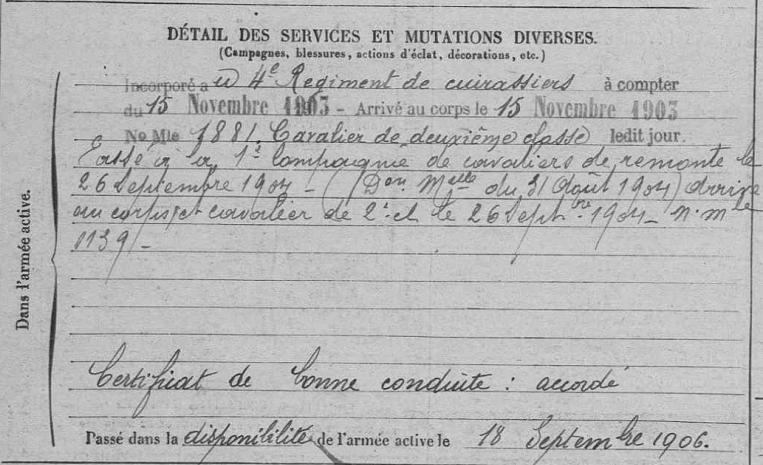 DÉTAIL DES SERVICES ET MUTATIONS DIVERSES.
(Campagnes, blessures, actions d'éclat, décorations, etc.)
Incorporé au 4e Regiment de cuirassiers à compter
du 15 Novembre 1903 - Arrivé au corps le 15 Novembre 1903
No Mle 1881 Cavalier de deuxième classe ledit jour.
Passé à la 1e Compagnie de cavaliers de remonte le
26 Septembre 1904 - (Don Mlle du 31 Août 1904) Arrivé
au corps et cavalier de 2e cl le 26 Septbre 1904 - n. mle
1139 -
Certificat de bonne conduite : accordé
Passé dans la disponibilité de l'armée active le 18 Septembre 1906.
Dans l'armée active.